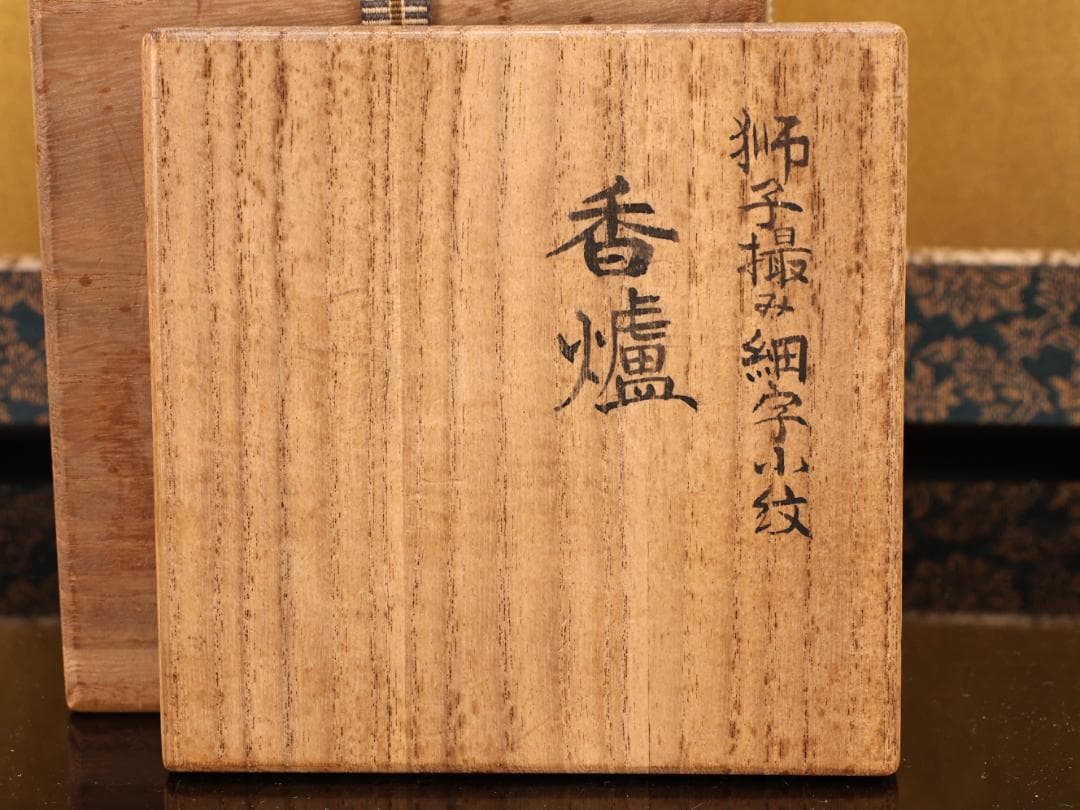 獅子撮み細字小紋
香爐